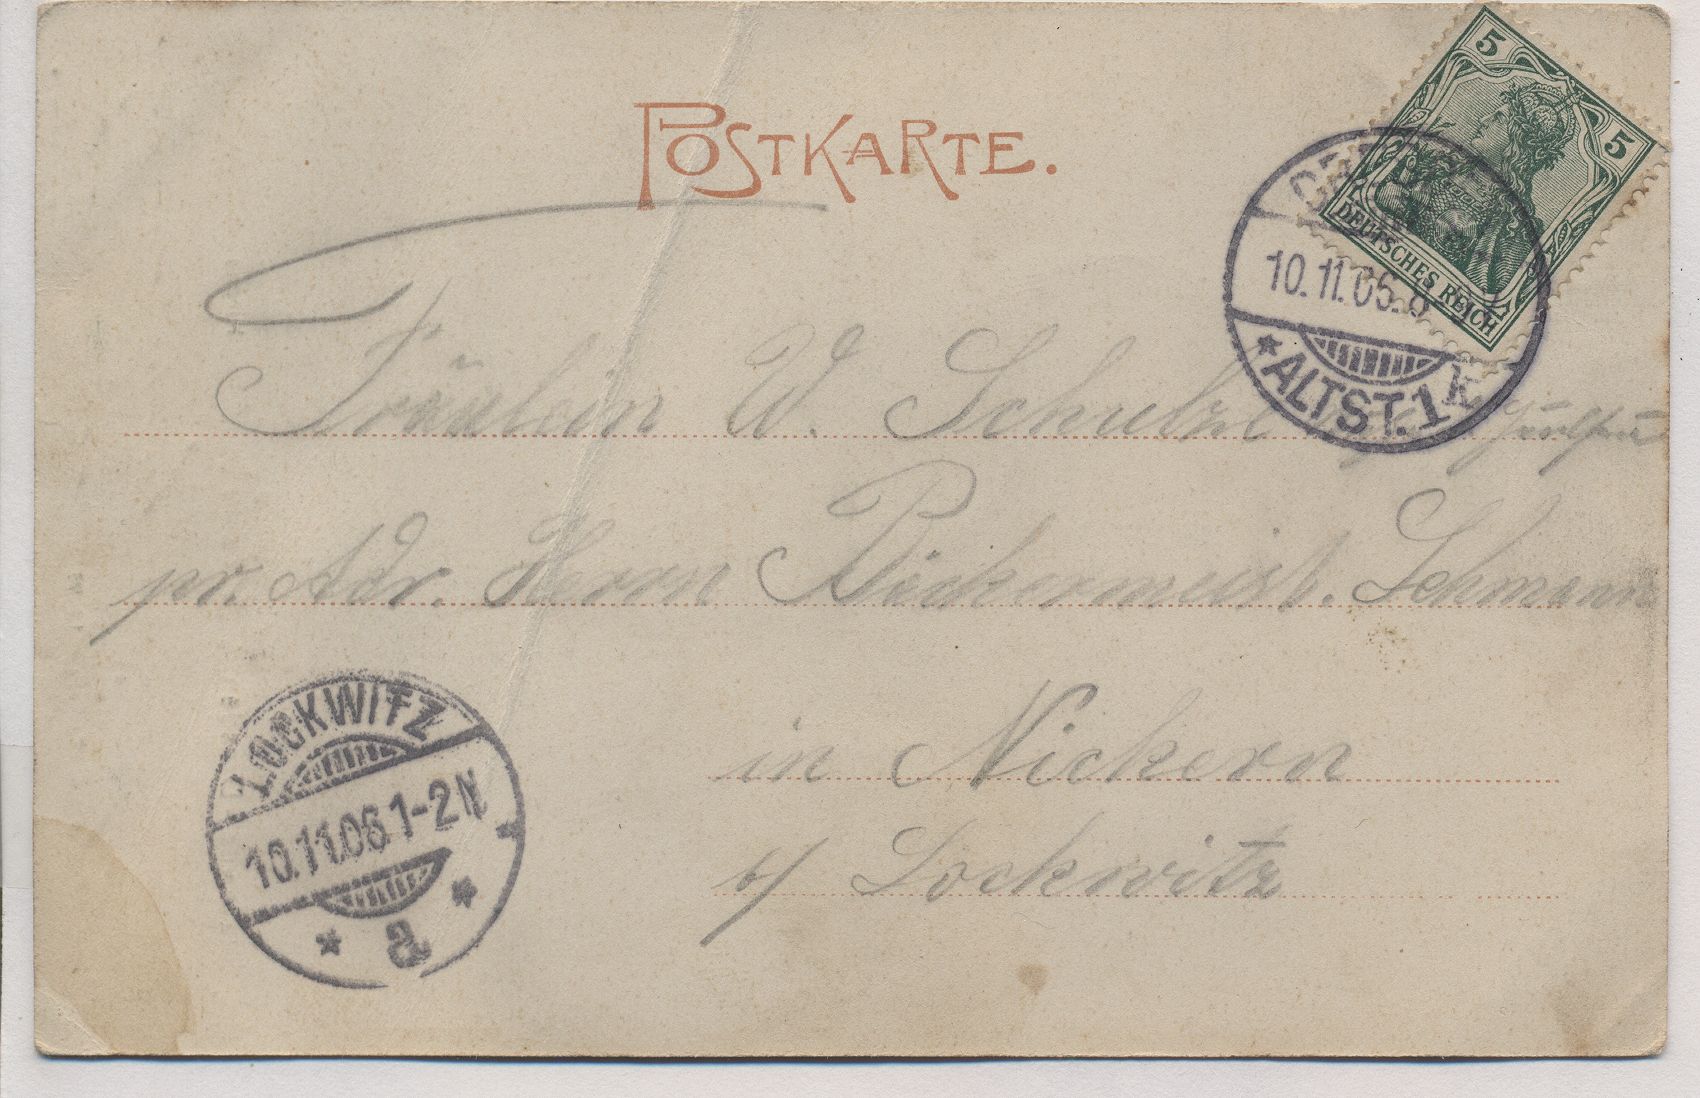 POSTKARTE.
5
5
DEUTSCHES REICH
10.11.05.8
*ALTST.1k
Fräulein W. Schulze
pr. Adr. Herrn Bäckermeist. Lehmann
in Nickern
b/ Lockwitz
LOCKWITZ
10.11.05 1-2N
* a *